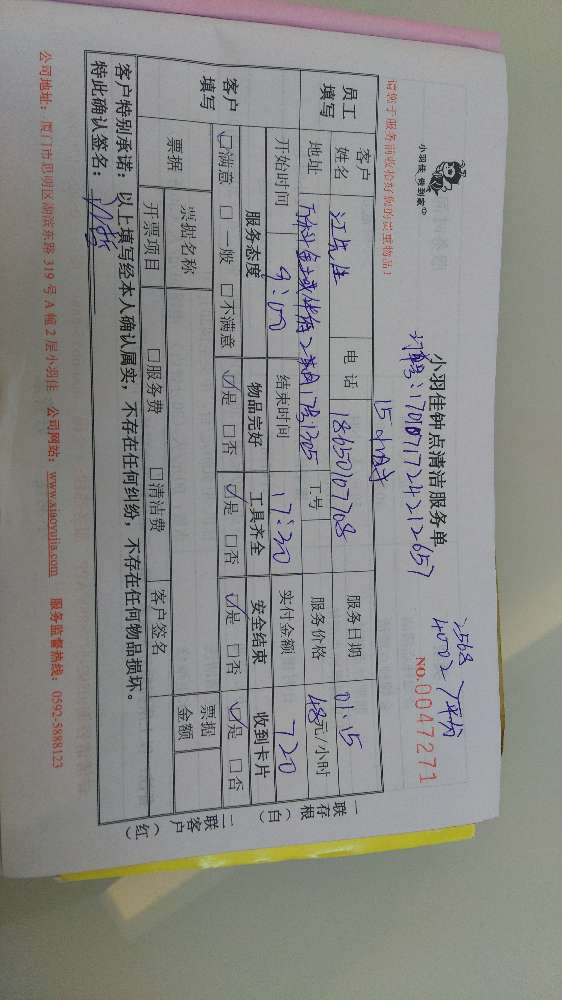 小羽佳 帮到家
小羽佳钟点清洁服务单
NO.0047271
15小时
员工填写
客户姓名
电话 18650107708
服务日期 01.15
地址
工号
服务价格 48元/小时
开始时间 9:00
结束时间 17:30
实付金额 720
客户填写
服务态度 物品完好 工具齐全 安全结束 收到卡片
☑满意 □一般 □不满意 ☑是 □否 ☑是 □否 ☑是 □否 ☑是 □否
票据
票据名称
票据金额
开票项目 □服务费 □清洁费 客户签名
客户特别承诺:以上填写经本人确认属实,不存在任何纠纷,不存在任何物品损坏。
特此确认签名:
一联存根(白) 二联客户(红)
公司地址:厦门市思明区湖滨东路 319 号 A 幢 2 层小羽佳 公司网站:www.xiaoyujia.com 服务监督热线:0592-5888123